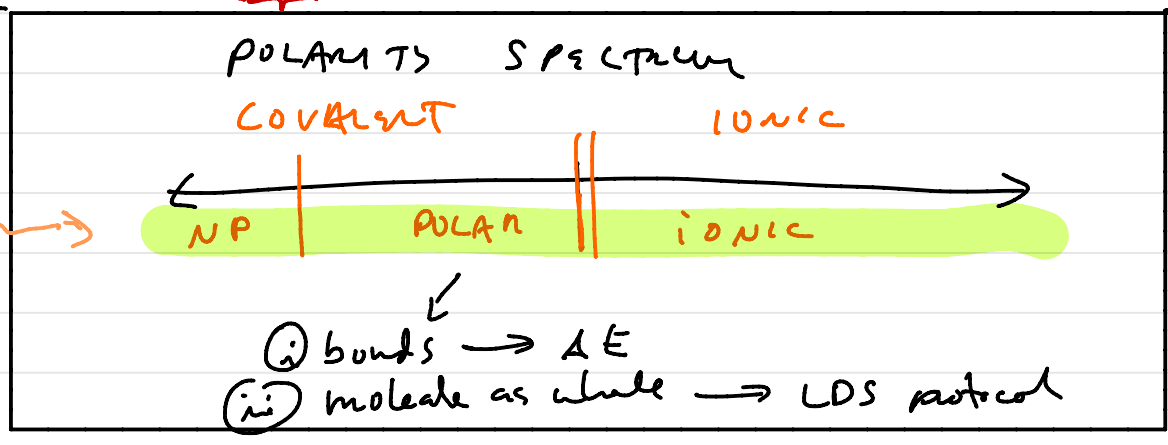 POLARITY SPECTRUM
COVALENT IONIC
NP POLAR IONIC
(i) bonds → ΔE
(ii) molecule as whole → LDS protocol